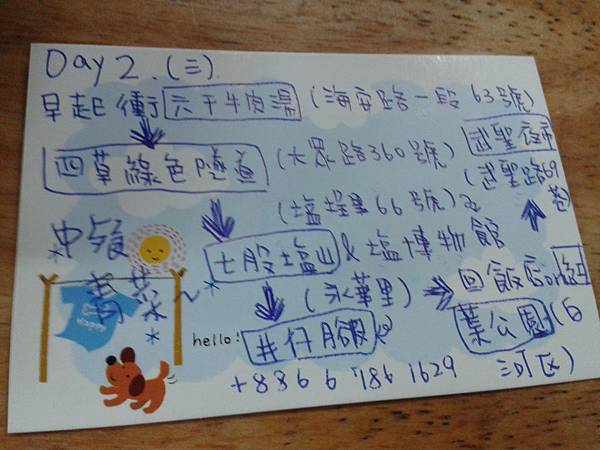 Day 2. (三)
早起衝 六千牛肉湯 (海安路一段 63號)
四草綠色隧道 (大眾路360號)
武聖夜市
(武聖路69巷
(塩埕里66號)
七股塩山 & 塩博物館
中餐
(永華里)
回飯店or
葉公園
井仔腳
hello!
+886 6 786 1629